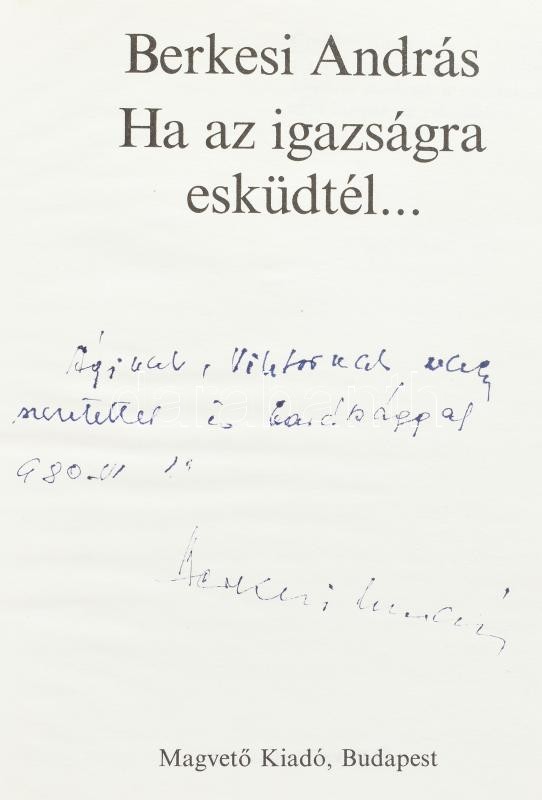 Berkesi András
Ha az igazságra
esküdtél...
Áginak, Viktornak nagy
szeretettel és barátsággal
980 VI
Berkesi András
Magvető Kiadó, Budapest